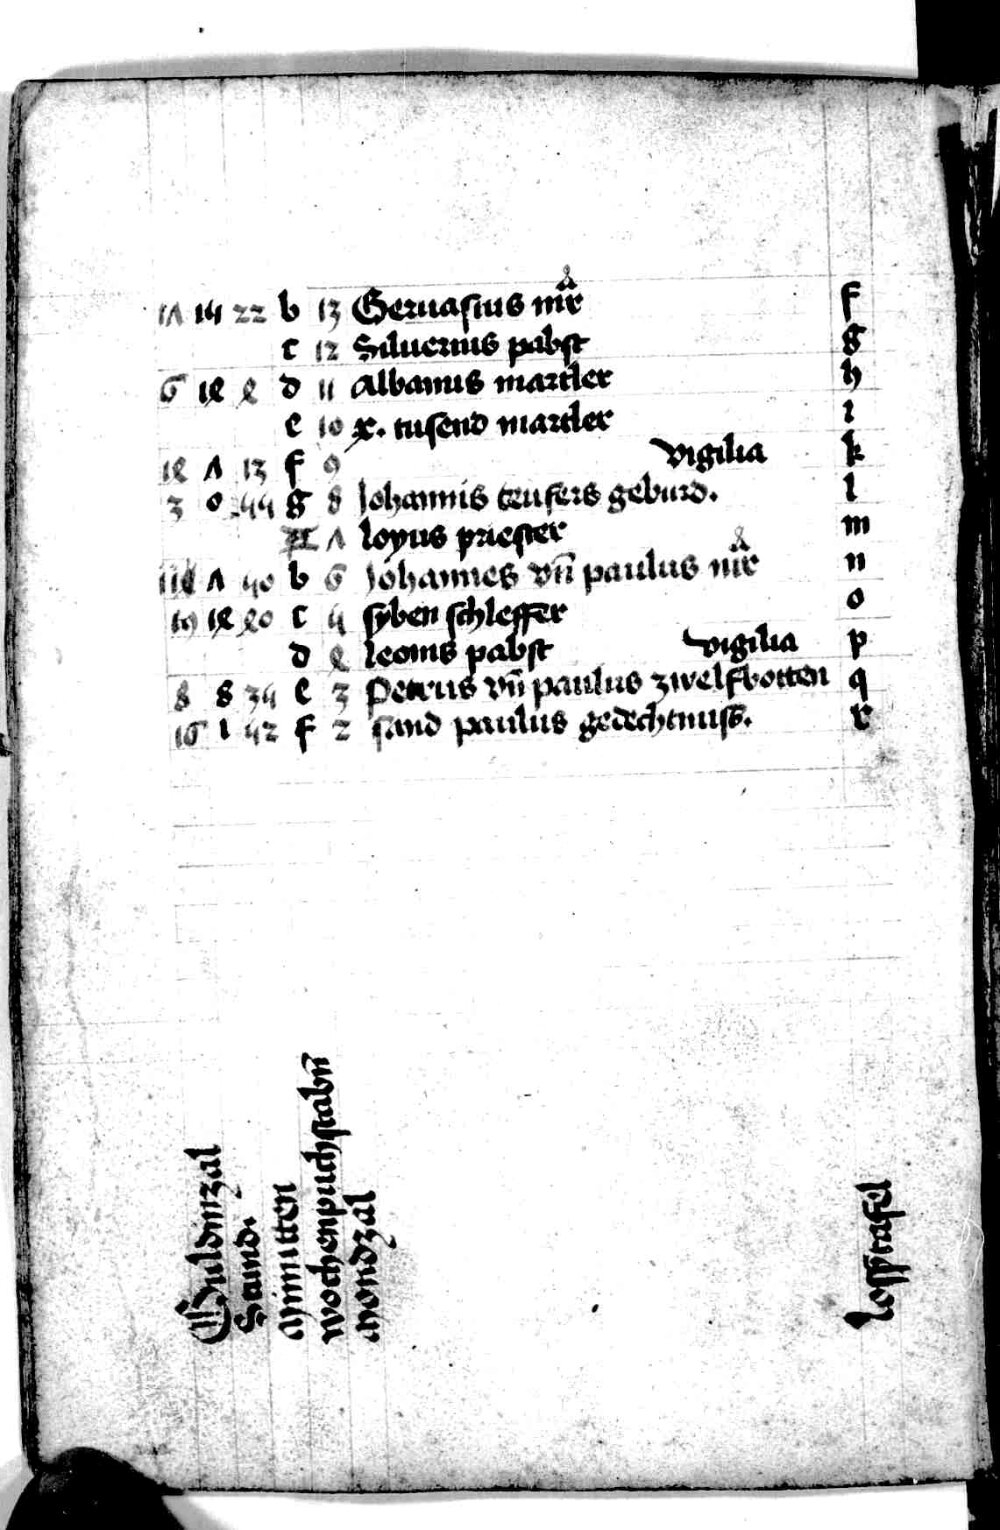 17 14 22 b 13 Geruasius mr̄ f
c 12 Siluerius pabst g
6 18 8 d 11 Albanus martler h
e 10 x. tusend martler i
18 7 13 f 9 vigilia k
3 0 44 g 8 Johannis teufers geburd. l
A 7 loyus priester m
7 40 b 6 Johannes vn̄ paulus mr̄ n
19 18 80 c 4 syben schleffer o
d 8 leonis pabst vigilia p
8 8 34 e 3 Petrus vn̄ paulus zwelfbotten q
16 1 42 f 2 sand paulus gedechtnuss. r
Guldinzal
Stund.
Minitten
Wochenpuchstabn̄
Mondzal
lossztafel